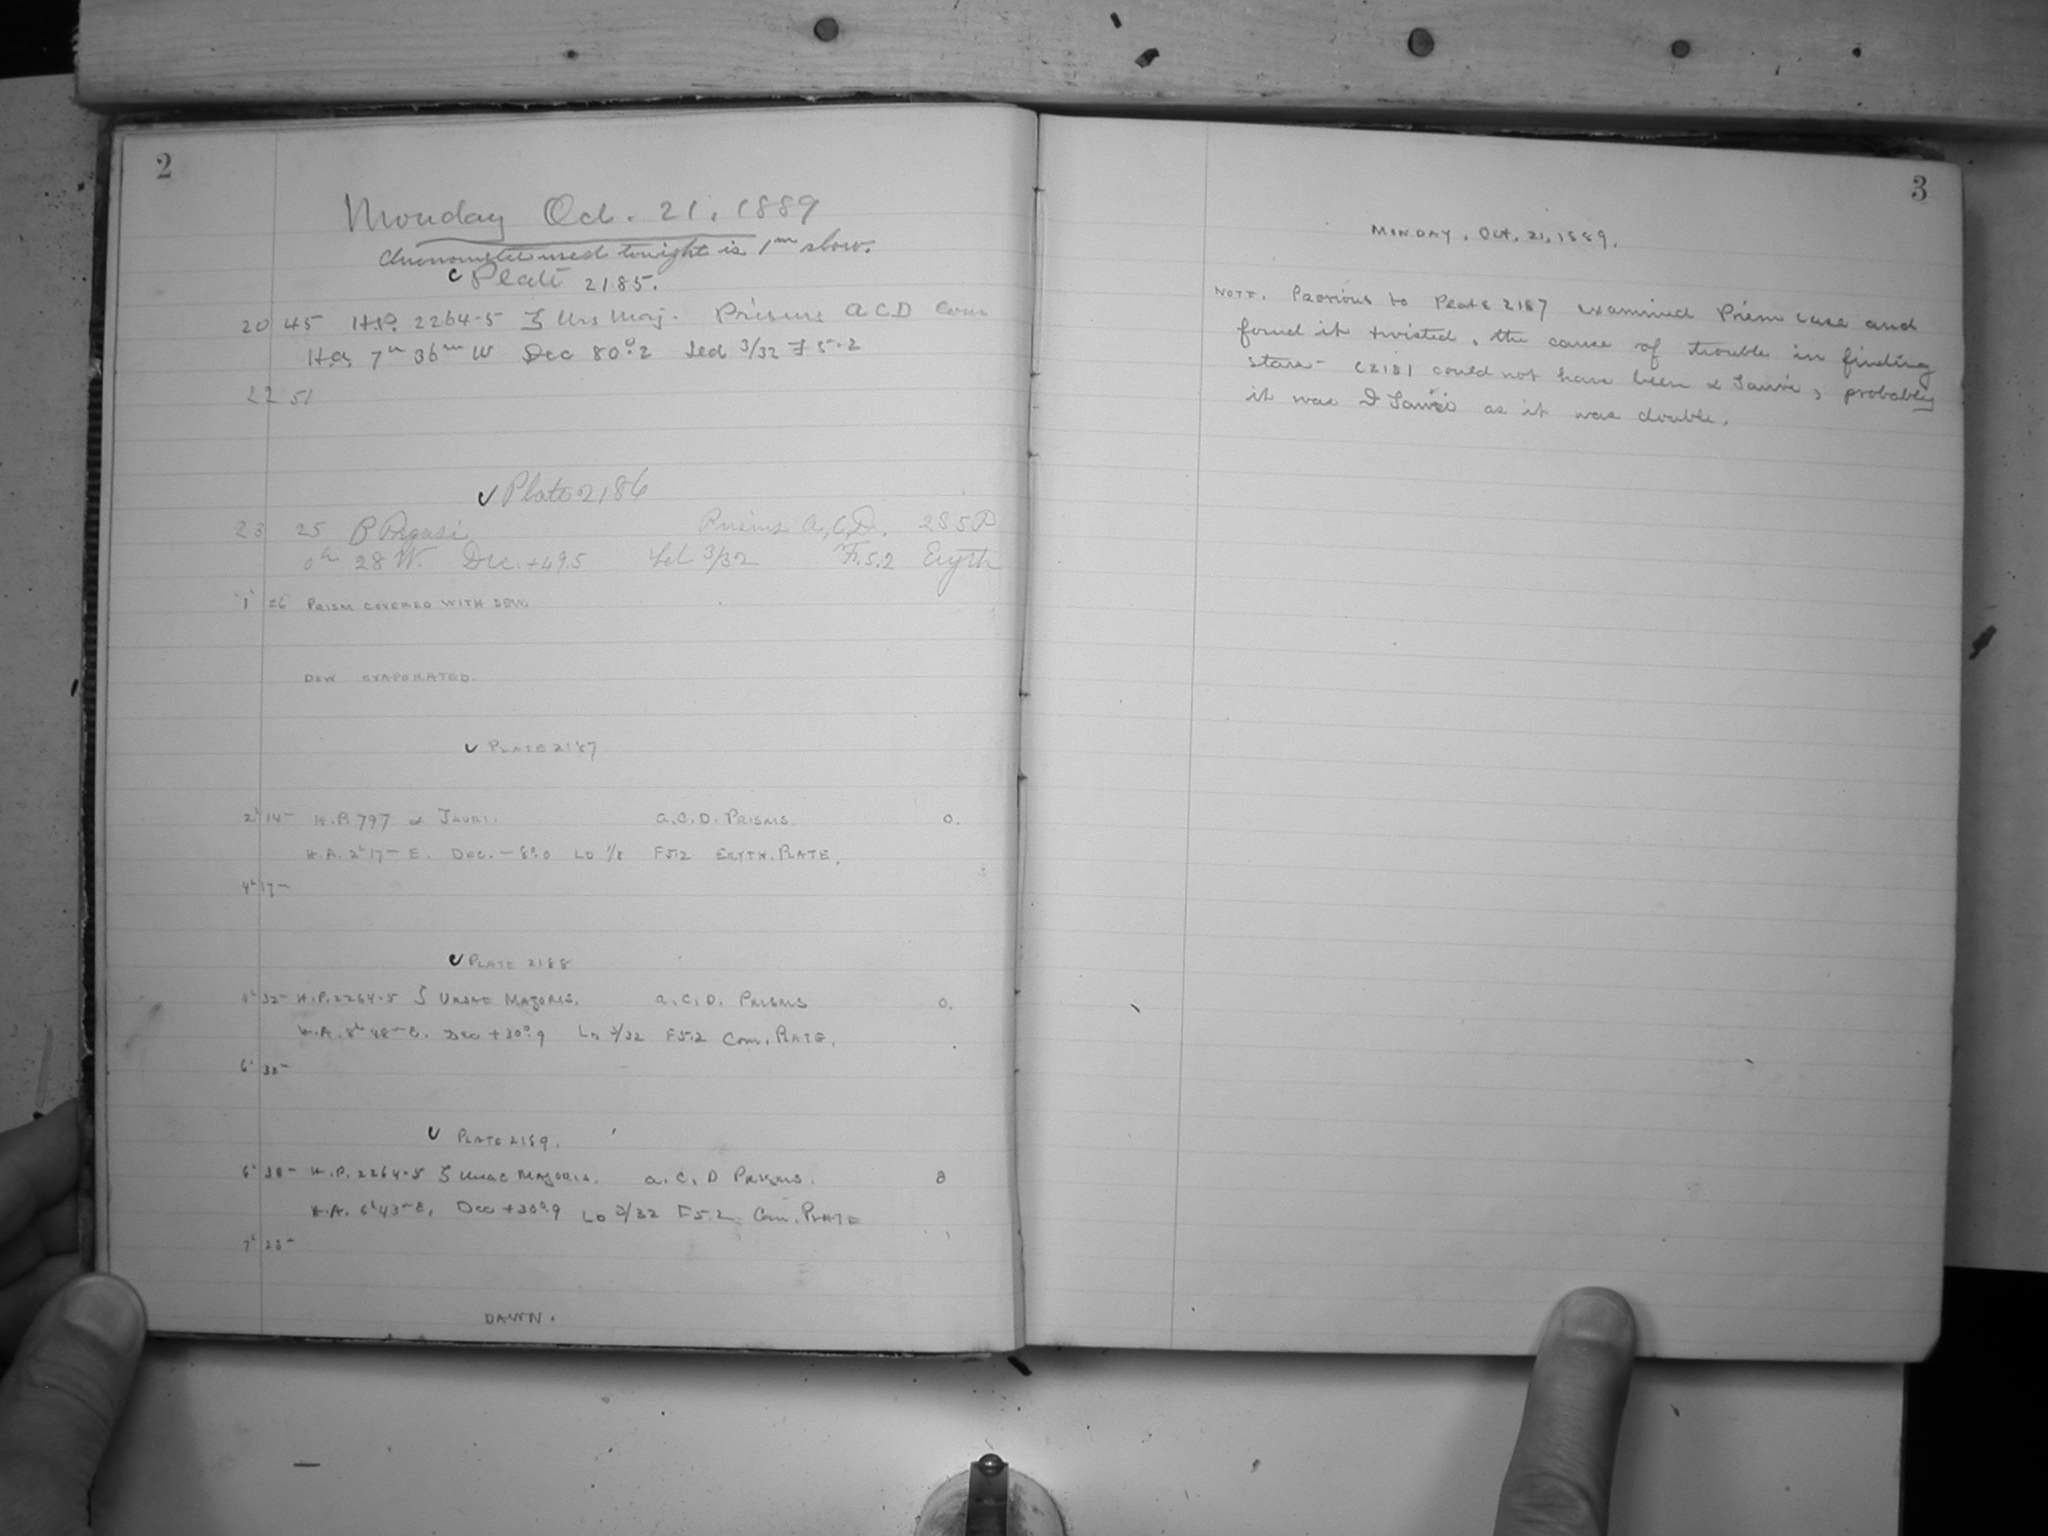 2
Monday Oct. 21, 1889
Chronometer used tonight is 1m slow.
Plate 2185.
20 45 H.P. 2264-5 ζ Urs Maj. Prisms A C D Com
H.A. 7h 36m W Dec 80°.2 Led 3/32 F 5.2
22 51
✓ Plate 2186
23 25 B Pegasi Prisms A, C, D.
0h 28 W. Dec. +49.5 Led 3/32 F.5.2 Eryth
1 26 PRISM COVERED WITH DEW.
DEW EVAPORATED.
✓ PLATE 2187
2h 14m H.P. 797 α TAURI. A.C.D. PRISMS. 0.
H.A. 2h 17m E. DEC. -8°.0 LD 1/8 F5.2 ERYTH. PLATE.
4h 17m
✓ PLATE 2188
4h 32m H.P. 2264-5 ζ URSAE MAJORIS. A.C.D. PRISMS 0.
H.A. 8h 48m E. Dec +30°.9 LD 3/32 F5.2 Com. PLATE.
6h 38m
✓ PLATE 2189.
6h 38m H.P. 2264-5 ζ URSAE MAJORIS. A. C. D PRISMS.
H.A. 6h 43m E. Dec +30°.9 LD 3/32 F5.2 Com. PLATE
7h 28m
DAWN.
3
MONDAY. Oct. 21, 1889.
NOTE. Previous to Plate 2187 examined Prism case and
found it twisted, the cause of trouble in finding
stars - C2181 could not have been α Tauri, probably
it was θ Tauri as it was double.